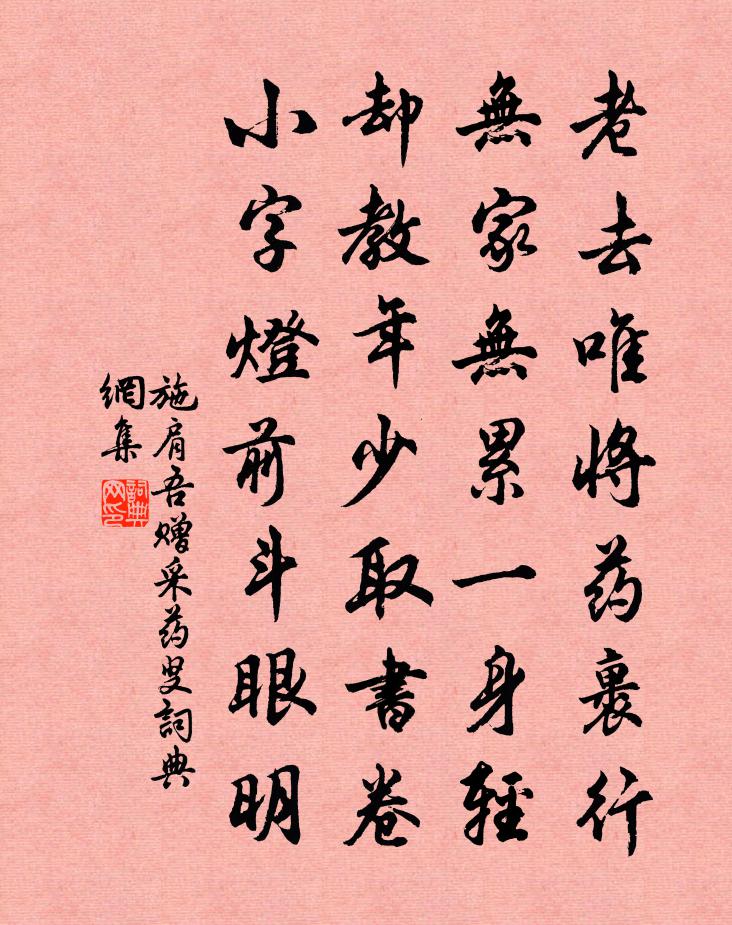 老去唯将药裹行
無家無累一身輕
却教年少取書卷
小字燈前斗眼明
施肩吾赠采药叟詞典
網集
詞典网印